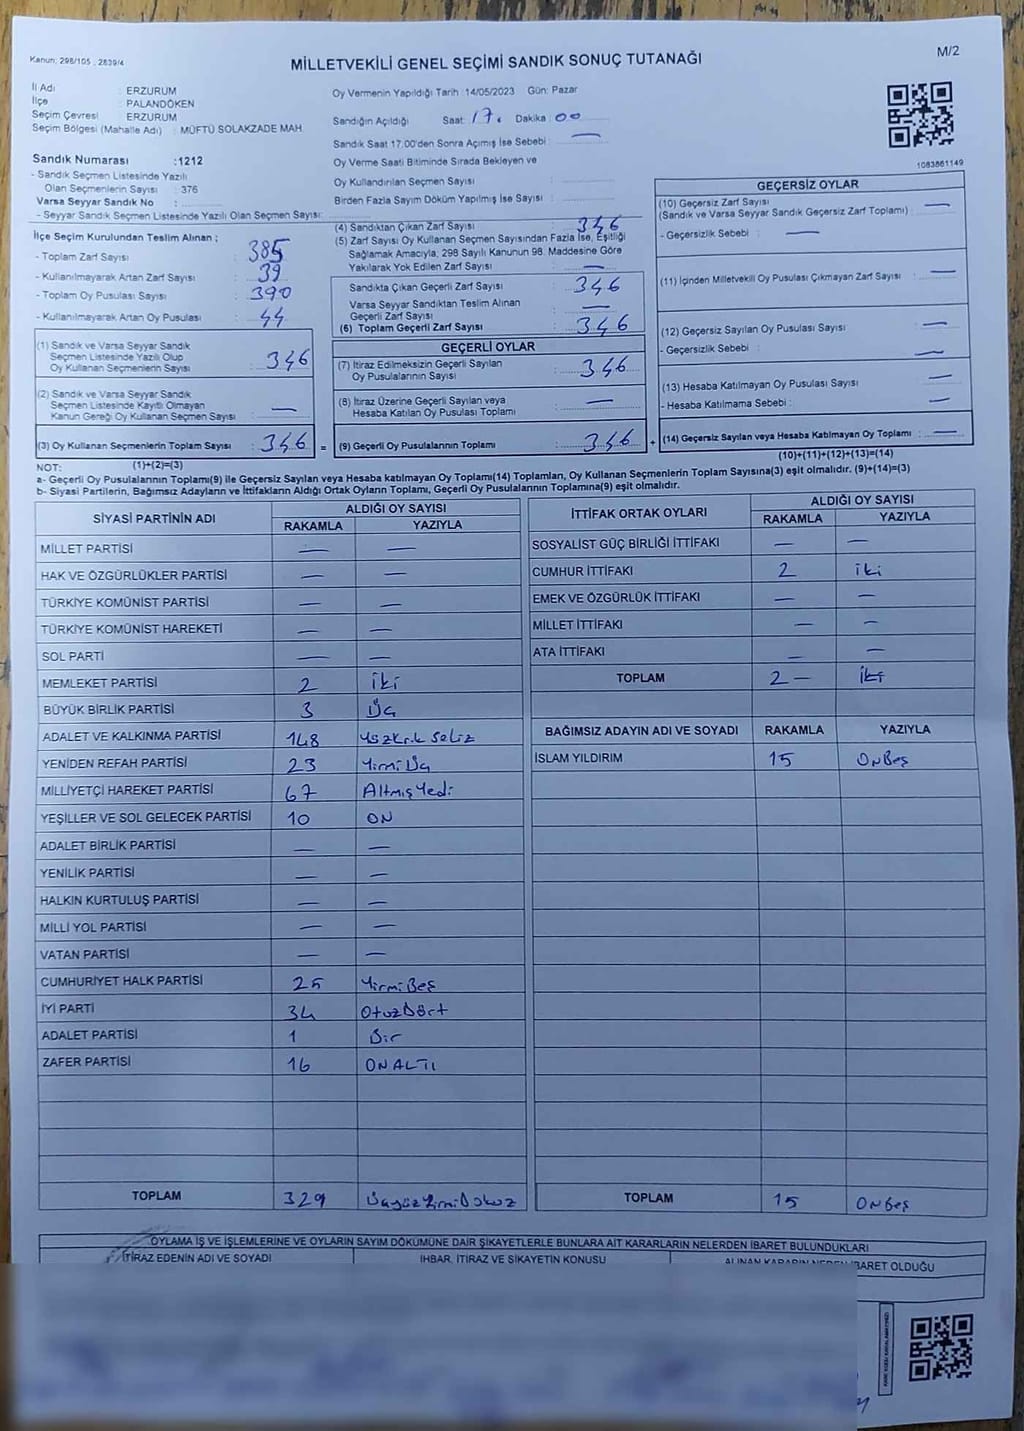 Kanun: 298/105 , 2839/4
MİLLETVEKİLİ GENEL SEÇİMİ SANDIK SONUÇ TUTANAĞI
M/2
İl Adı : ERZURUM
İlçe : PALANDÖKEN
Seçim Çevresi : ERZURUM
Seçim Bölgesi (Mahalle Adı) : MÜFTÜ SOLAKZADE MAH.
Sandık Numarası :1212
- Sandık Seçmen Listesinde Yazılı
Olan Seçmenlerin Sayısı : 376
Varsa Seyyar Sandık No :
- Seyyar Sandık Seçmen Listesinde Yazılı Olan Seçmen Sayısı:
Oy Vermenin Yapıldığı Tarih :14/05/2023 Gün: Pazar
Sandığın Açıldığı Saat: 17. Dakika: 00
Sandık Saat 17.00'den Sonra Açımış İse Sebebi : —
Oy Verme Saati Bitiminde Sırada Bekleyen ve
Oy Kullandırılan Seçmen Sayısı :
Birden Fazla Sayım Döküm Yapılmış İse Sayısı :
1083861149
İlçe Seçim Kurulundan Teslim Alınan ;
- Toplam Zarf Sayısı : 385
- Kullanılmayarak Artan Zarf Sayısı : 39
- Toplam Oy Pusulası Sayısı : 390
- Kullanılmayarak Artan Oy Pusulası : 44
(1) Sandık ve Varsa Seyyar Sandık
Seçmen Listesinde Yazılı Olup
Oy Kullanan Seçmenlerin Sayısı : 346
(2) Sandık ve Varsa Seyyar Sandık
Seçmen Listesinde Kayıtlı Olmayan
Kanun Gereği Oy Kullanan Seçmen Sayısı : —
(3) Oy Kullanan Seçmenlerin Toplam Sayısı : 346 =
(1)+(2)=(3)
(4) Sandıktan Çıkan Zarf Sayısı : 346
(5) Zarf Sayısı Oy Kullanan Seçmen Sayısından Fazla İse, Eşitliği
Sağlamak Amacıyla, 298 Sayılı Kanunun 98. Maddesine Göre
Yakılarak Yok Edilen Zarf Sayısı : —
Sandıkta Çıkan Geçerli Zarf Sayısı : 346
Varsa Seyyar Sandıktan Teslim Alınan
Geçerli Zarf Sayısı : —
(6) Toplam Geçerli Zarf Sayısı : 346
GEÇERLİ OYLAR
(7) İtiraz Edilmeksizin Geçerli Sayılan
Oy Pusulalarının Sayısı : 346
(8) İtiraz Üzerine Geçerli Sayılan veya
Hesaba Katılan Oy Pusulası Toplamı : —
(9) Geçerli Oy Pusulalarının Toplamı : 346 +
GEÇERSİZ OYLAR
(10) Geçersiz Zarf Sayısı
(Sandık ve Varsa Seyyar Sandık Geçersiz Zarf Toplamı) : —
- Geçersizlik Sebebi : —
(11) İçinden Milletvekili Oy Pusulası Çıkmayan Zarf Sayısı : —
(12) Geçersiz Sayılan Oy Pusulası Sayısı : —
- Geçersizlik Sebebi : —
(13) Hesaba Katılmayan Oy Pusulası Sayısı : —
- Hesaba Katılmama Sebebi : —
(14) Geçersiz Sayılan veya Hesaba Katılmayan Oy Toplamı : —
(10)+(11)+(12)+(13)=(14)
NOT:
a- Geçerli Oy Pusulalarının Toplamı(9) ile Geçersiz Sayılan veya Hesaba katılmayan Oy Toplamı(14) Toplamları, Oy Kullanan Seçmenlerin Toplam Sayısına(3) eşit olmalıdır. (9)+(14)=(3)
b- Siyasi Partilerin, Bağımsız Adayların ve İttifakların Aldığı Ortak Oyların Toplamı, Geçerli Oy Pusulalarının Toplamına(9) eşit olmalıdır.
SİYASİ PARTİNİN ADI ALDIĞI OY SAYISI
RAKAMLA YAZIYLA
MİLLET PARTİSİ — —
HAK VE ÖZGÜRLÜKLER PARTİSİ — —
TÜRKİYE KOMÜNİST PARTİSİ — —
TÜRKİYE KOMÜNİST HAREKETİ — —
SOL PARTİ — —
MEMLEKET PARTİSİ 2 İki
BÜYÜK BİRLİK PARTİSİ 3 Üç
ADALET VE KALKINMA PARTİSİ 148 Yüzkırk Sekiz
YENİDEN REFAH PARTİSİ 23 Yirmi Üç
MİLLİYETÇİ HAREKET PARTİSİ 67 Altmış Yedi
YEŞİLLER VE SOL GELECEK PARTİSİ 10 ON
ADALET BİRLİK PARTİSİ — —
YENİLİK PARTİSİ — —
HALKIN KURTULUŞ PARTİSİ — —
MİLLİ YOL PARTİSİ — —
VATAN PARTİSİ — —
CUMHURİYET HALK PARTİSİ 25 Yirmi Beş
İYİ PARTİ 34 Otuz Dört
ADALET PARTİSİ 1 Bir
ZAFER PARTİSİ 16 ON ALTI
TOPLAM 329 Üçyüz Yirmi Dokuz
İTTİFAK ORTAK OYLARI ALDIĞI OY SAYISI
RAKAMLA YAZIYLA
SOSYALİST GÜÇ BİRLİĞİ İTTİFAKI — —
CUMHUR İTTİFAKI 2 iki
EMEK VE ÖZGÜRLÜK İTTİFAKI — —
MİLLET İTTİFAKI — —
ATA İTTİFAKI — —
TOPLAM 2 — İki
BAĞIMSIZ ADAYIN ADI VE SOYADI RAKAMLA YAZIYLA
İSLAM YILDIRIM 15 ONBeş
TOPLAM 15 ONBeş
OYLAMA İŞ VE İŞLEMLERİNE VE OYLARIN SAYIM DÖKÜMÜNE DAİR ŞİKAYETLERLE BUNLARA AİT KARARLARIN NELERDEN İBARET BULUNDUKLARI
İTİRAZ EDENİN ADI VE SOYADI İHBAR, İTİRAZ VE ŞİKAYETİN KONUSU ALINAN KARARIN NEDEN İBARET OLDUĞU